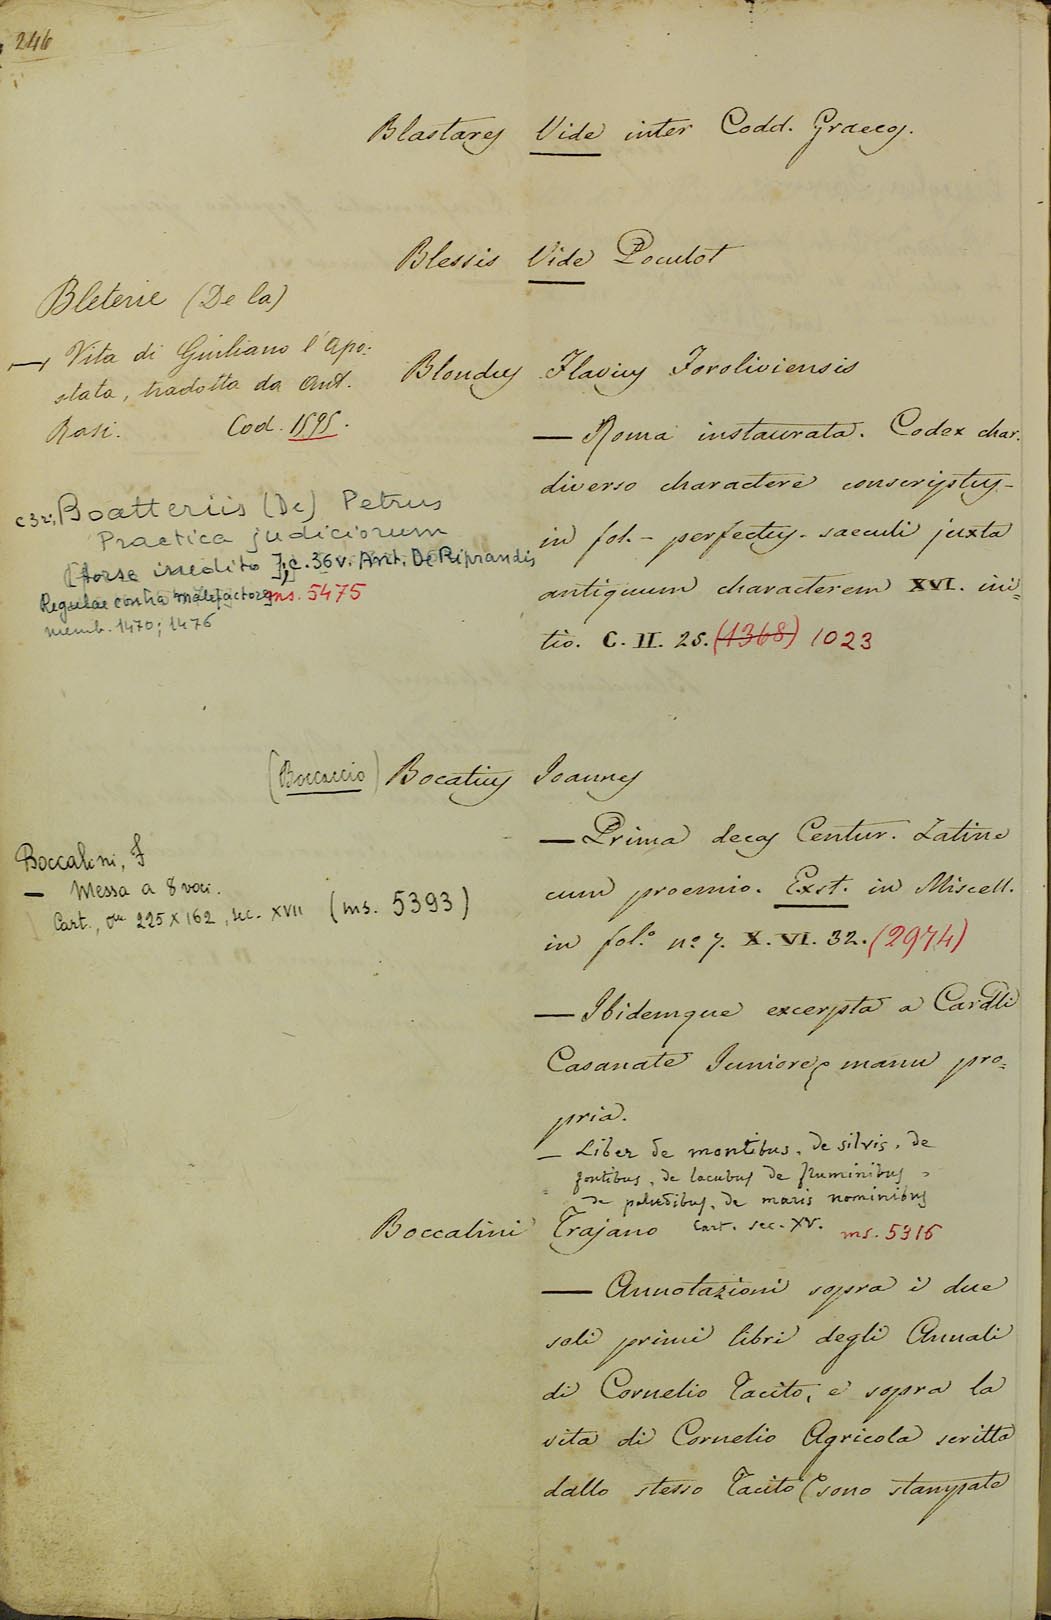 246
Blastares Vide inter Codd. Graecos.
Blessis Vide Poculot
Bleterie (De la)
— Vita di Giuliano l'Apo:
stata, tradotta da Ant.
Rasi. Cod. 1595.
Blondus Flavius Foroliviensis
— Roma instaurata. Codex char.
diverso charactere conscriptus-
in fol. - perfectus. saeculi juxta
antiquum characterem XVI. ini=
tio. C. II. 25. (1368) 1023
c 32: Boatteriis (De) Petrus
Practica judiciorum
[forse inedito]; c. 36v. Ant. De Riprandis
Regulae contra malefactores, ms. 5475
memb. 1470; 1476
(Boccaccio) Bocatius Joannes
— Prima decas Centur. Latine
cum proemio. Exst. in Miscell.
in fol.º nº 7. X. VI. 32. (2974)
Boccalini, F
— Messa a 8 voci.
Cart., 225 X 162, sec. XVII (ms. 5393)
— Ibidemque excerpta a Cardli
Casanate Juniore, manu pro=
pria.
— Liber de montibus, de silvis, de
fontibus, de lacubus de fluminibus,
de paludibus, de maris nominibus
Cart. sec. XV. ms. 5316
Boccalini Trajano
— Annotazioni sopra i due
soli primi libri degli Annali
di Cornelio Tacito, e sopra la
vita di Cornelio Agricola scritta
dallo stesso Tacito (sono stampate